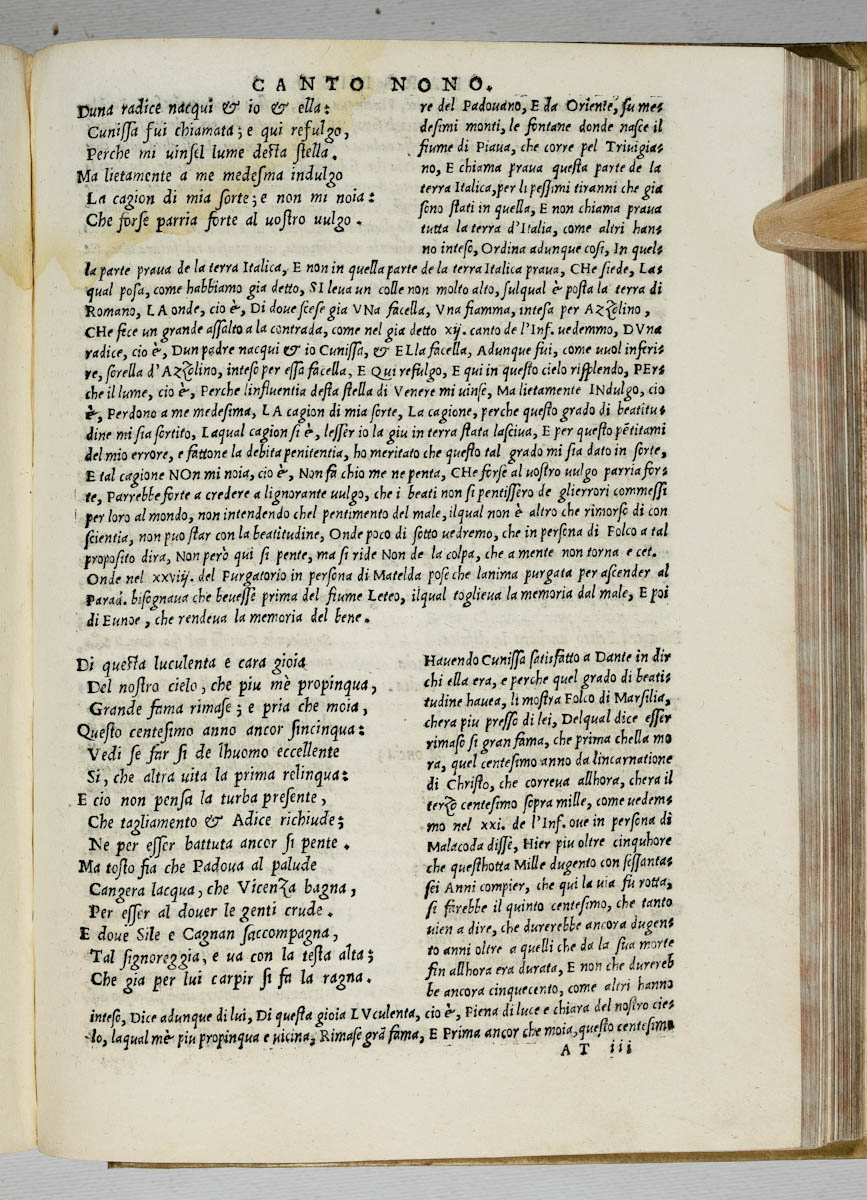 CANTO NONO.
Duna radice nacqui & io & ella:
Cunissa fui chiamata; e qui refulgo,
Perche mi uinsel lume desta stella.
Ma lietamente a me medesma indulgo
La cagion di mia sorte; e non mi noia:
Che forse parria forte al uostro uulgo.
re del Padouano, E da Oriente, su mes
desimi monti, le fontane donde nasce il
fiume di Piaua, che corre pel Triuigia-
no, E chiama praua questa parte de la
terra Italica, per li pessimi tiranni che gia
sono stati in quella, E non chiama praua
tutta la terra d'Italia, come altri han-
no inteso, Ordina adunque cosi, In quel-
la parte praua de la terra Italica, E non in quella parte de la terra Italica praua, CHe siede, Las
qual posa, come habbiamo gia detto, SI leua un colle non molto alto, sulqual è posta la terra di
Romano, LA onde, cio è, Di doue scese gia VNa facella, Vna fiamma, intesa per AZZolino,
CHe fece un grande assalto a la contrada, come nel gia detto xij. canto de l'Inf. uedemmo, DVna
radice, cio è, Dun padre nacqui & io Cunissa, & ELla facella, Adunque fui, come uuol inferi-
re, sorella d'AZZolino, inteso per essa facella, E QVi refulgo, E qui in questo cielo risplendo, PErs
che il lume, cio è, Perche linfluentia desta stella di Venere mi uinse, Ma lietamente INdulgo, cio
è, Perdono a me medesima, LA cagion di mia sorte, La cagione, perche questo grado di beatitu-
dine mi sia sortito, Laqual cagion si è, lesser io la giu in terra stata lasciua, E per questo pētitami
del mio errore, e fattone la debita penitentia, ho meritato che questo tal grado mi sia dato in sorte,
E tal cagione NOn mi noia, cio è, Non fa chio me ne penta, CHe forse al uostro uulgo parria for-
te, Parrebbe forte a credere a lignorante uulgo, che i beati non si pentissero de glierrori commessi
per loro al mondo, non intendendo chel pentimento del male, ilqual non è altro che rimorso di con
scientia, non puo star con la beatitudine, Onde poco di sotto uedremo, che in persona di Folco a tal
proposito dira, Non però qui si pente, ma si ride Non de la colpa, che a mente non torna e cet.
Onde nel xxviij. del Purgatorio in persona di Matelda pose che lanima purgata per ascender al
Parad. bisognaua che beuesse prima del fiume Leteo, ilqual toglieua la memoria dal male, E poi
di Eunoe, che rendeua la memoria del bene.
Di questa luculenta e cara gioia
Del nostro cielo, che piu mè propinqua,
Grande fama rimase; e pria che moia,
Questo centesimo anno ancor sincinqua:
Vedi se far si de lhuomo eccellente
Si, che altra uita la prima relinqua:
E cio non pensa la turba presente,
Che tagliamento & Adice richiude;
Ne per esser battuta ancor si pente.
Ma tosto fia che Padoua al palude
Cangera lacqua, che VicenZa bagna,
Per esser al douer le genti crude.
E doue Sile e Cagnan saccompagna,
Tal signoreggia, e ua con la testa alta;
Che gia per lui carpir si fa la ragna.
Hauendo Cunissa satisfatto a Dante in dir
chi ella era, e perche quel grado di beati-
tudine hauea, li mostra Folco di Marsilia,
chera piu presso di lei, Delqual dice esser
rimaso si gran fama, che prima chella mo
ra, quel centesimo anno da lincarnatione
di Christo, che correua allhora, chera il
terZo centesimo sopra mille, come uedem-
mo nel xxi. de l'Inf. oue in persona di
Malacoda disse, Hier piu oltre cinquhore
che questhotta Mille dugento con sessanta-
sei Anni compier, che qui la uia fu rotta,
si farebbe il quinto centesimo, che tanto
uien a dire, che durerebbe ancora dugen-
to anni oltre a quelli che da la sua morte
fin allhora era durata, E non che durereb
be ancora cinquecento, come altri hanno
inteso, Dice adunque di lui, Di questa gioia LVculenta, cio è, Piena di luce e chiara del nostro cie-
lo, laqual mè piu propinqua e uicina, Rimase grā fama, E Prima ancor che moia, questo centesimo
AT iii